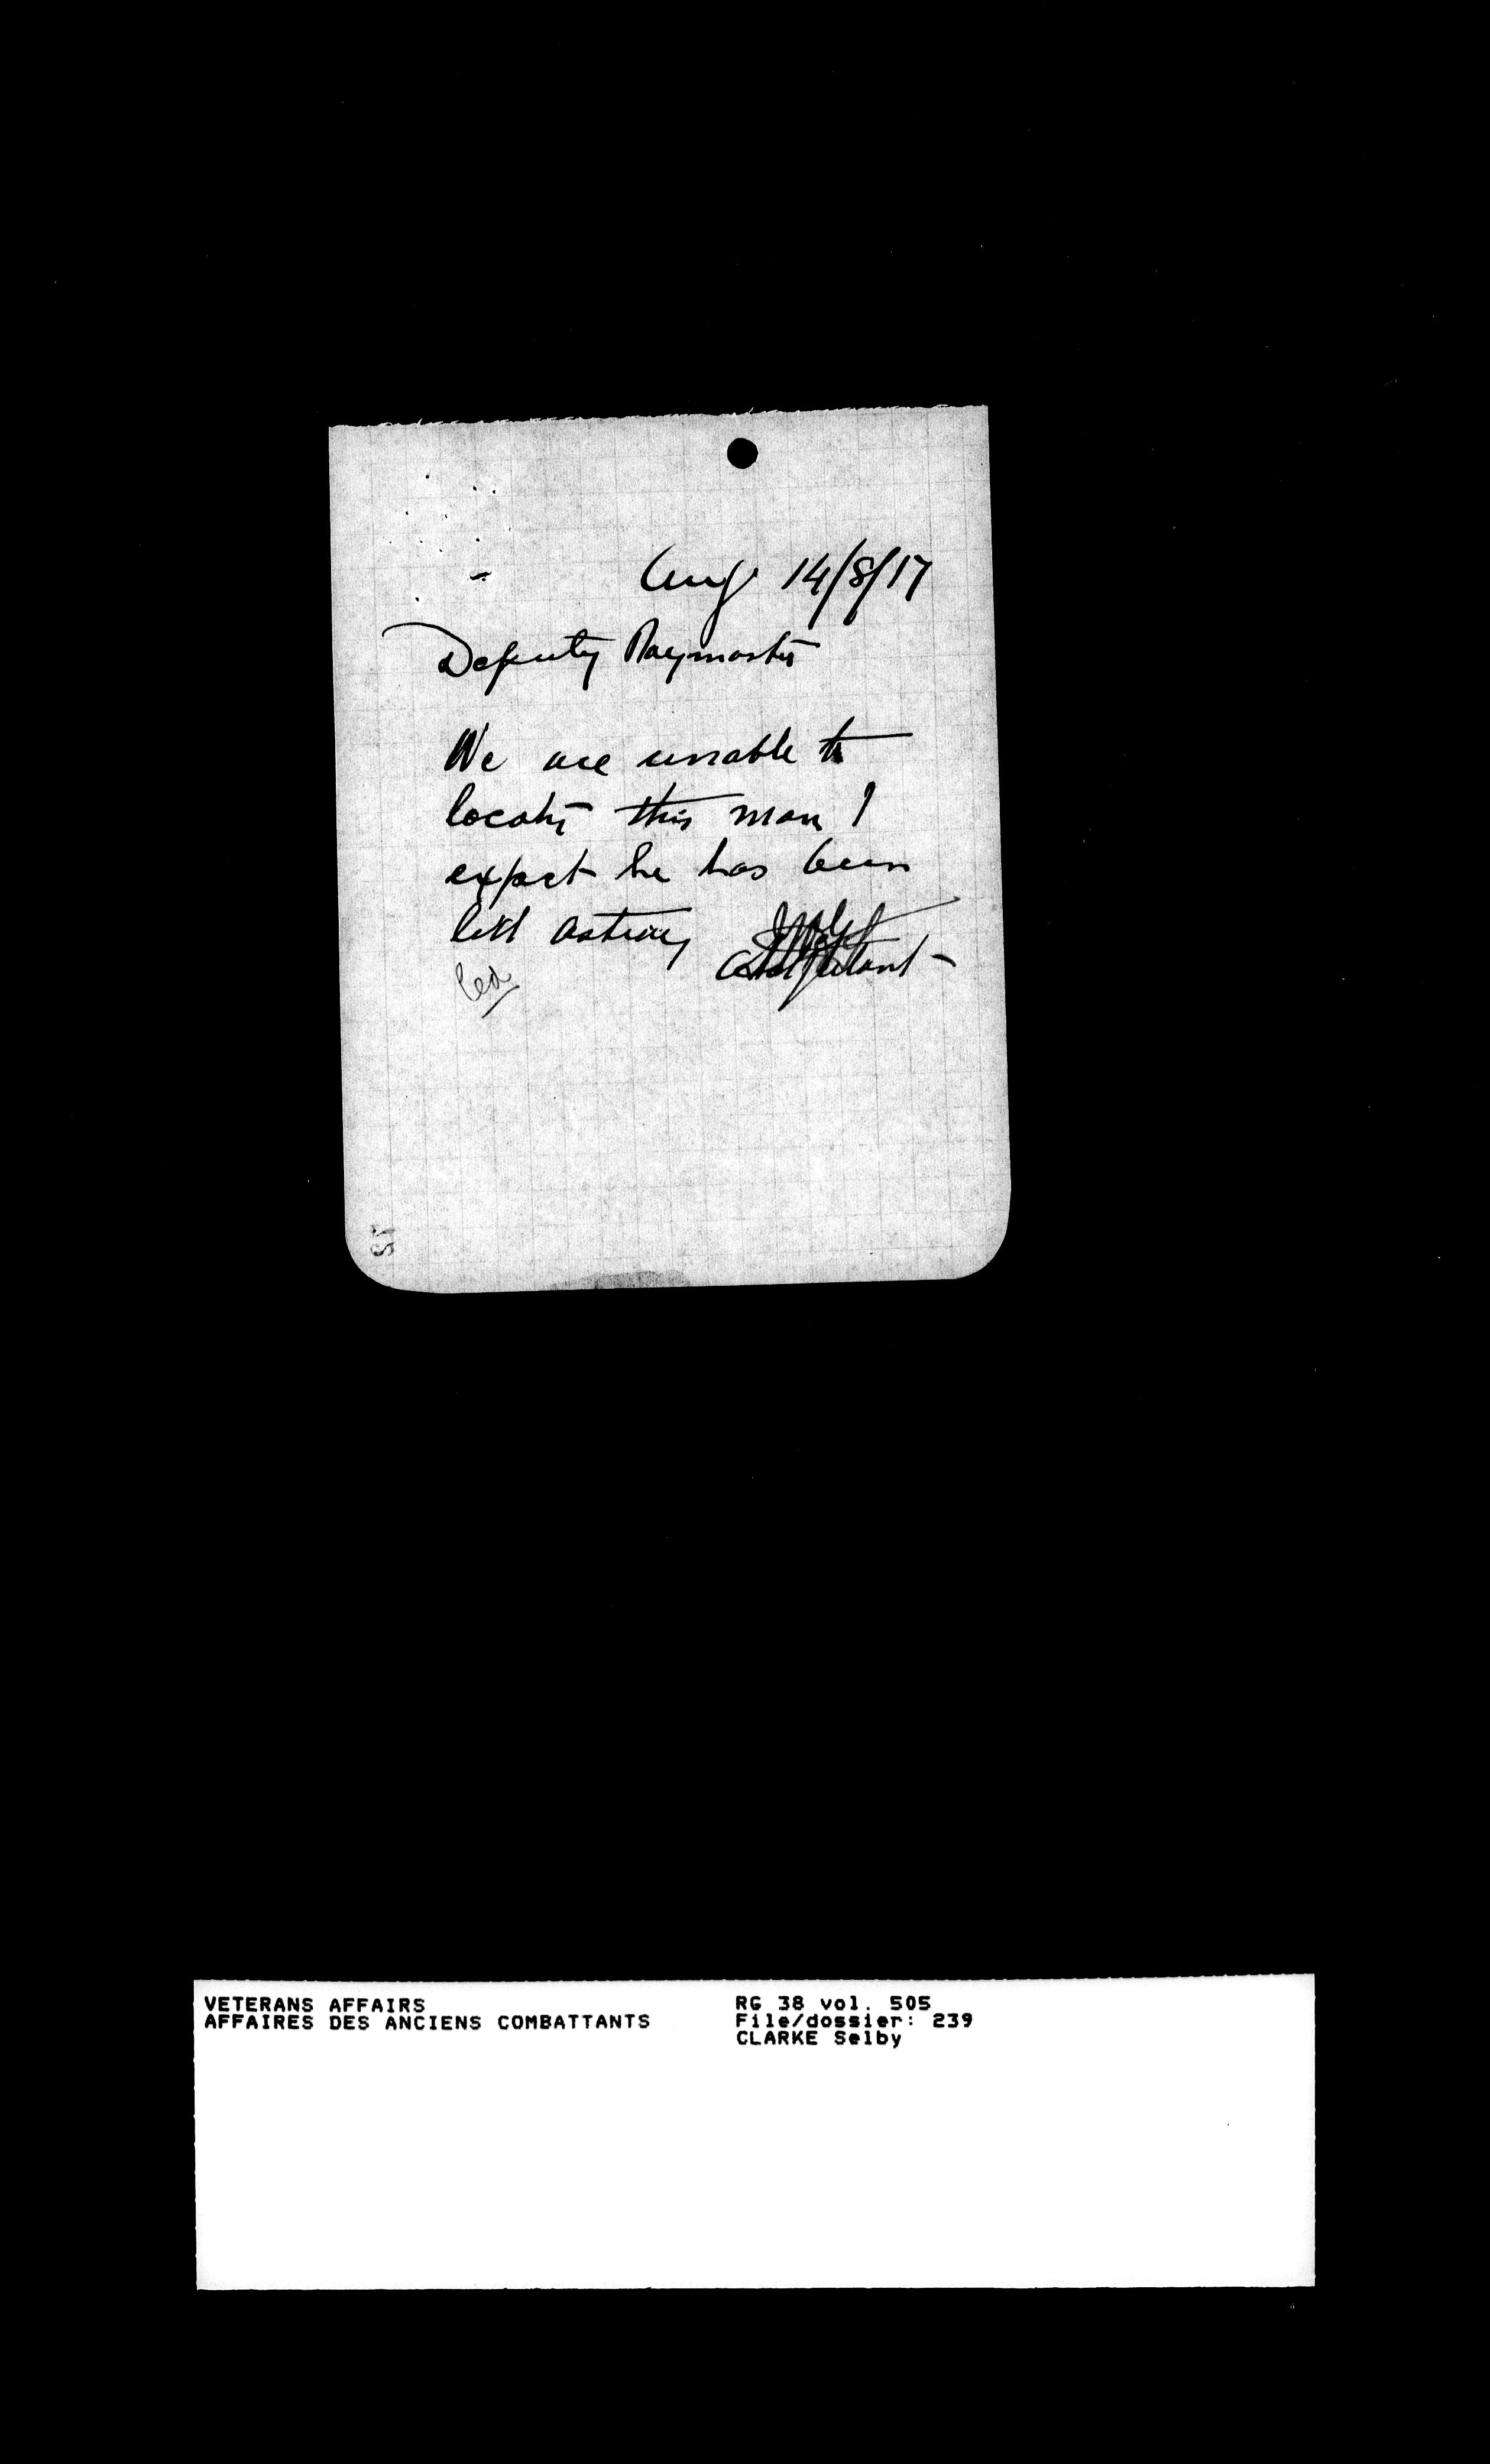 Aug. 14/8/17
Deputy Paymaster
We are unable to
locate this man I
expect he has been
lead astray
led
Adjutant -
VETERANS AFFAIRS
AFFAIRES DES ANCIENS COMBATTANTS
RG 38 vol. 505
File/dossier: 239
CLARKE Selby